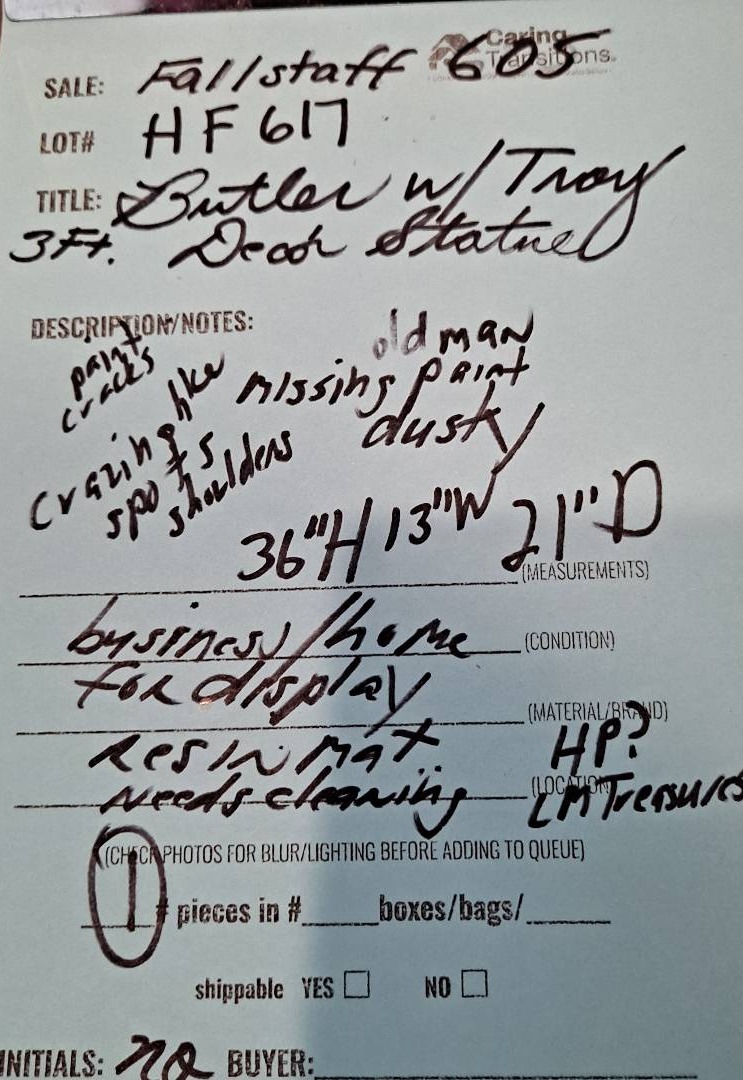 Caring
Transitions.
SALE: Fallstaff 605
LOT# HF617
TITLE: Butler w/Tray
3Ft. Decor Statue
DESCRIPTION/NOTES:
paint
cracks
old man
missing paint
dusky
crazing like
spots
shoulders
36"H 13"W 21"D
(MEASUREMENTS)
business/home (CONDITION)
for display (MATERIAL/BRAND)
Resin Mat. HP?
Needs cleaning (LOCATION) LM Treasures
(CHECK PHOTOS FOR BLUR/LIGHTING BEFORE ADDING TO QUEUE)
1 # pieces in #_____boxes/bags/_____
shippable YES ☐ NO ☐
INITIALS: BUYER: